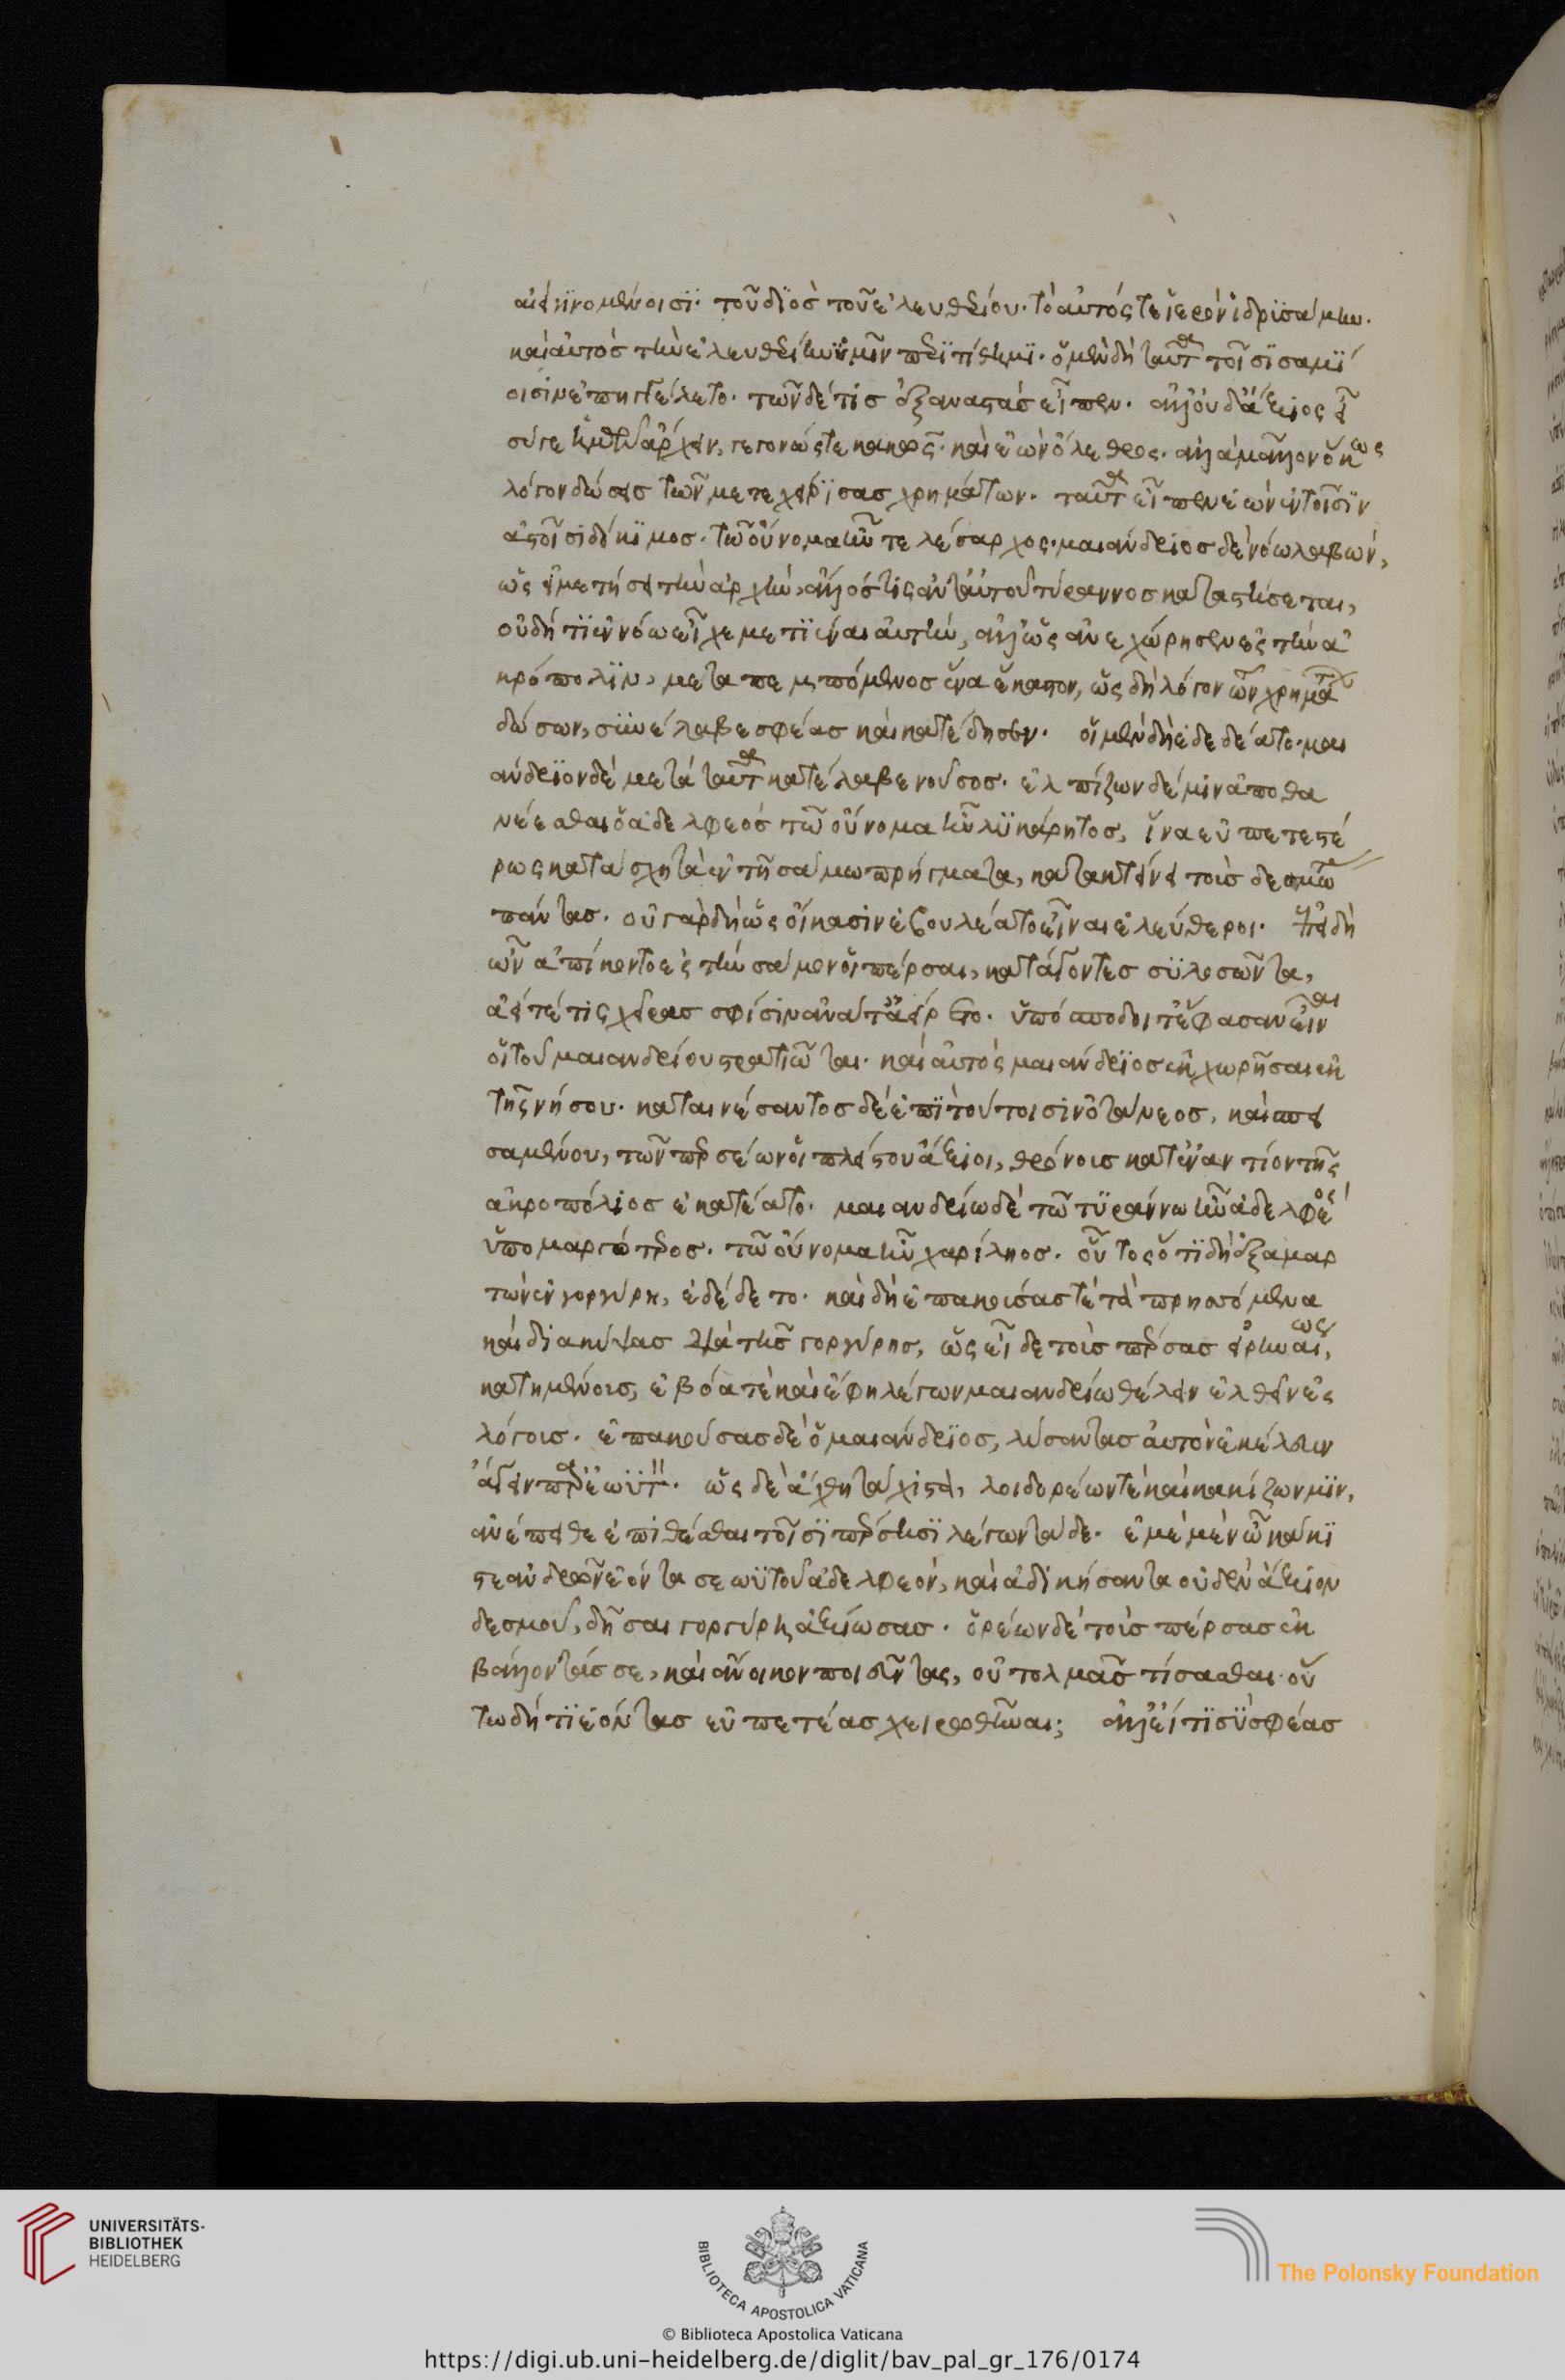 αἰεὶ γινομένοισι· τοῦ διὸς τοῦ ἐλευθερίου· τὸ αὐτός τε ἱερὸν ἱδρισάμην.
καὶ αὐτὸς τὴν ἐλευθερίην ὑμῖν περιτίθημι. ὁ μὲν δὴ ταῦτα τοῖσι σαμί
οισιν ἐπηγγέλετο. τῶν δέ τις ἐξαναστὰς εἶπεν. ἀλλ' οὐδ' ἄξιος εἶ
σύ γε ἡμέων ἄρχειν, γεγονώς τε κακῶς. καὶ ἐὼν ὄλεθρος. ἀλλὰ μᾶλλον ὅκως
λόγον δώσεις τῶν μετεχείρισας χρημάτων. ταῦτα εἶπεν ἐὼν ἐν τοῖσιν
ἀστοῖσι δόκιμος. τῶ οὔνομα ἦν τελέσαρχος. μαιάνδριος δὲ νόω λαβών,
ὡς εἰ μετήσει τὴν ἀρχήν, ἄλλός τις ἀντ' αὐτοῦ τύραννος καταστήσεται,
οὐ δή τι ἐν νόω εἶχε μετιέναι αὐτήν, ἀλλ' ὡς ἀνεχώρησεν ἐς τὴν ἀ
κρόπολιν, μεταπεμπόμενος ἕνα ἕκαστον, ὡς δὴ λόγον τῶν χρημάτων
δώσων, συνέλαβε σφέας καὶ κατέδησεν. οἱ μὲν δὴ ἐδεδέατο. μαι
άνδριον δὲ μετὰ ταῦτα κατέλαβε νοῦσος. ἐλπίζων δέ μιν ἀποθα
νέεσθαι ὁ ἀδελφεὸς τῶ οὔνομα ἦν λυκάρητος, ἵνα εὐπετεστέ
ρως κατάσχη τὰ ἐν τῆ σάμω πρήγματα, κατακτείνει τοὺς δεσμώ
τας πάντας. οὐ γὰρ δὴ ὡς οἴκασιν ἐβουλέατο εἶναι ἐλεύθεροι. ἐπειδὴ
ὦν ἀπίκοντο ἐς τὴν σάμον οἱ πέρσαι, κατάγοντες συλοσῶντα,
οὔτέ τις χεῖρας σφίσιν ἀνταείρετο. ὑπόσπονδοί τε ἔφασαν εἶναι
οἱ τοῦ μαιανδρίου στρατιῶται. καὶ αὐτὸς μαιάνδριος ἐκχωρῆσαι ἐκ
τῆς νήσου. καταινέσαντος δὲ ἐπὶ τούτοισιν ὀτάνεος, καὶ σπει
σαμένου, τῶν περσέων οἱ πλείστου ἄξιοι, θρόνους κατεναντίον τῆς
ἀκροπόλιος ἐκατέατο. μαιανδρίω δὲ τῶ τυράννω ἦν ἀδελφεὸς
ὑπομαργότερος. τῶ οὔνομα ἦν χαρίλκος. οὗτος ὅτι δὴ ἐξαμαρ
τὼν ἐν γοργύρη, ἐδέδετο. καὶ δὴ ἐπακούσας τε τὰ πρησσόμενα
καὶ διακύψας διὰ τῆς γοργύρης, ὡς εἶδε τοὺς πέρσας εἰρηναίως,
κατημένους, ἐβόα τε καὶ ἔφη λέγων μαιανδρίω θέλειν ἐλθεῖν ἐς
λόγους. ἐπακούσας δὲ ὁ μαιάνδριος, λύσαντας αὐτὸν ἐκέλευεν
ἄγειν παρ' ἑωυτόν. ὡς δὲ ἄχθη τάχιστα, λοιδορέων τε καὶ κακίζων μιν,
ἀνέπειθε ἐπιθέσθαι τοῖσι πέρσησι λέγων τάδε. ἐμὲ μὲν ὦ κάκι
στε ἀνδρῶν ἐόντα σεωυτοῦ ἀδελφεόν, καὶ ἀδικήσαντα οὐδὲν ἄξιον
δεσμοῦ, δήσας γοργύρης ἀξίωσας. ὁρέων δὲ τοὺς πέρσας ἐκ
βάλλοντάς σε, καὶ ἄνοικον ποιεῦντας, οὐ τολμᾶς τίσασθαι. οὕ
τω δή τι ἐόντας εὐπετέας χειρωθῆναι; ἀλλ' εἴ τι σὺ σφέας
UNIVERSITÄTS-
BIBLIOTHEK
HEIDELBERG
BIBLIOTECA APOSTOLICA VATICANA
The Polonsky Foundation
© Biblioteca Apostolica Vaticana
https://digi.ub.uni-heidelberg.de/diglit/bav_pal_gr_176/0174